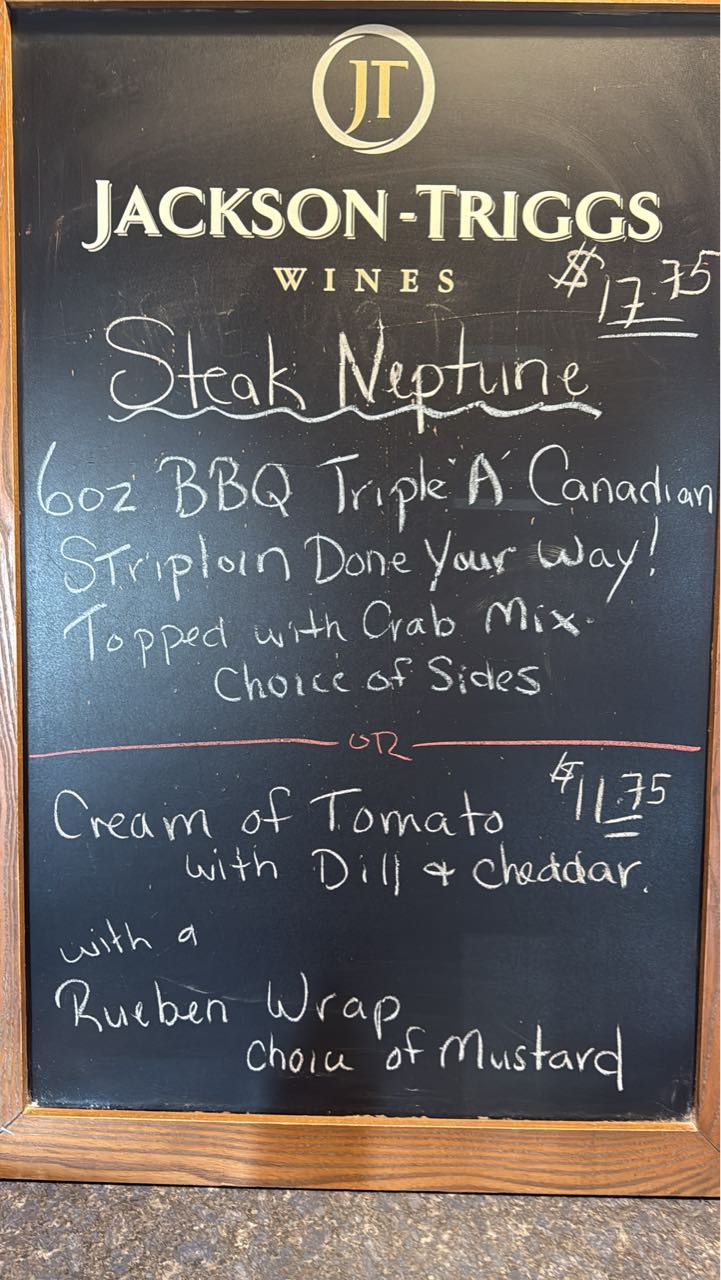 JT
JACKSON-TRIGGS
WINES
$17.75
Steak Neptune
6oz BBQ Triple "A" Canadian
Striploin Done Your Way!
Topped with Crab Mix.
Choice of Sides
OR
$11.75
Cream of Tomato
with Dill & Cheddar.
with a
Rueben Wrap
choice of Mustard